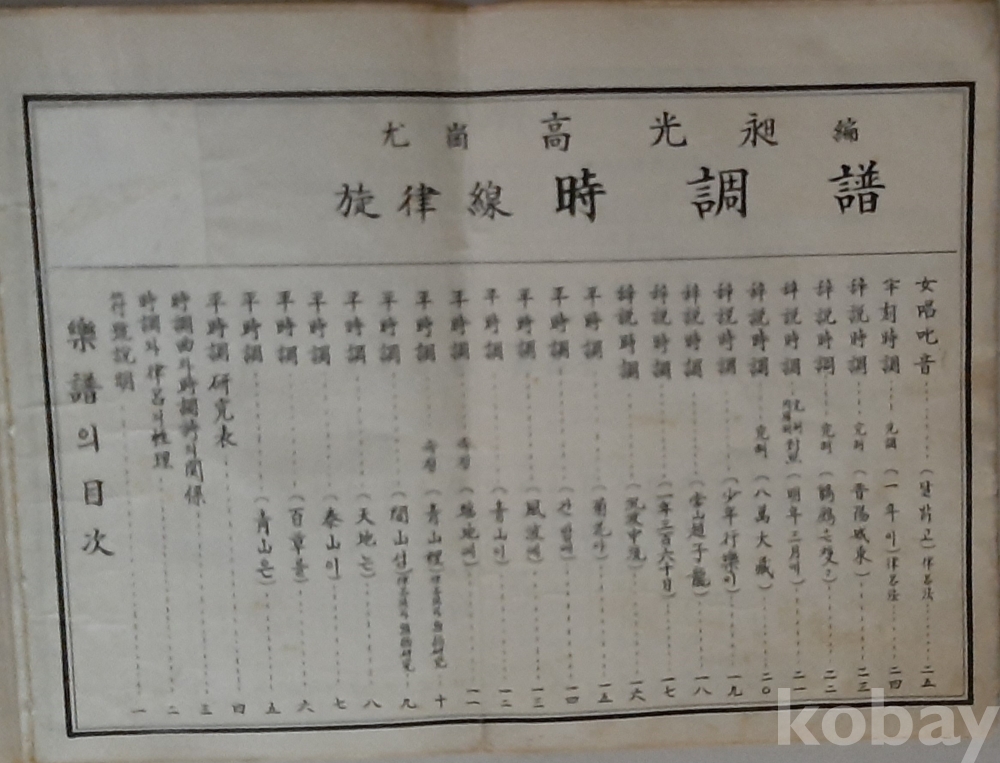 尤崗 高光昶 編
旋律線 時調譜
樂譜의 目次
符號說明 一
時調와 律呂의 推理 二
時調曲과 時調詩의 関係 三
平時調 研究表 四
平時調 (青山은) 五
平時調 (百草를) 六
平時調 (泰山이) 七
平時調 (天地는) 八
平時調 (間山섬) 九
平時調 (青山裡) 十
平時調 一一
平時調 (青山이) 一二
平時調 (風波에) 一三
平時調 (간밤에) 一四
平時調 (菊花야) 一五
辭說時調 一六
辭說時調 (一年三百六十日) 一七
辭說時調 (常山趙子龍) 一八
辭說時調 (少年行樂이) 一九
辭說時調 (八萬大藏) 二〇
辭說時調 (明年三月에) 二一
辭說時調 二二
辭說時調 (晋陽城東) 二三
平調時調 (一年이) 律呂法 二四
女唱叱音 (달밝고) 律呂法 二五
kobay